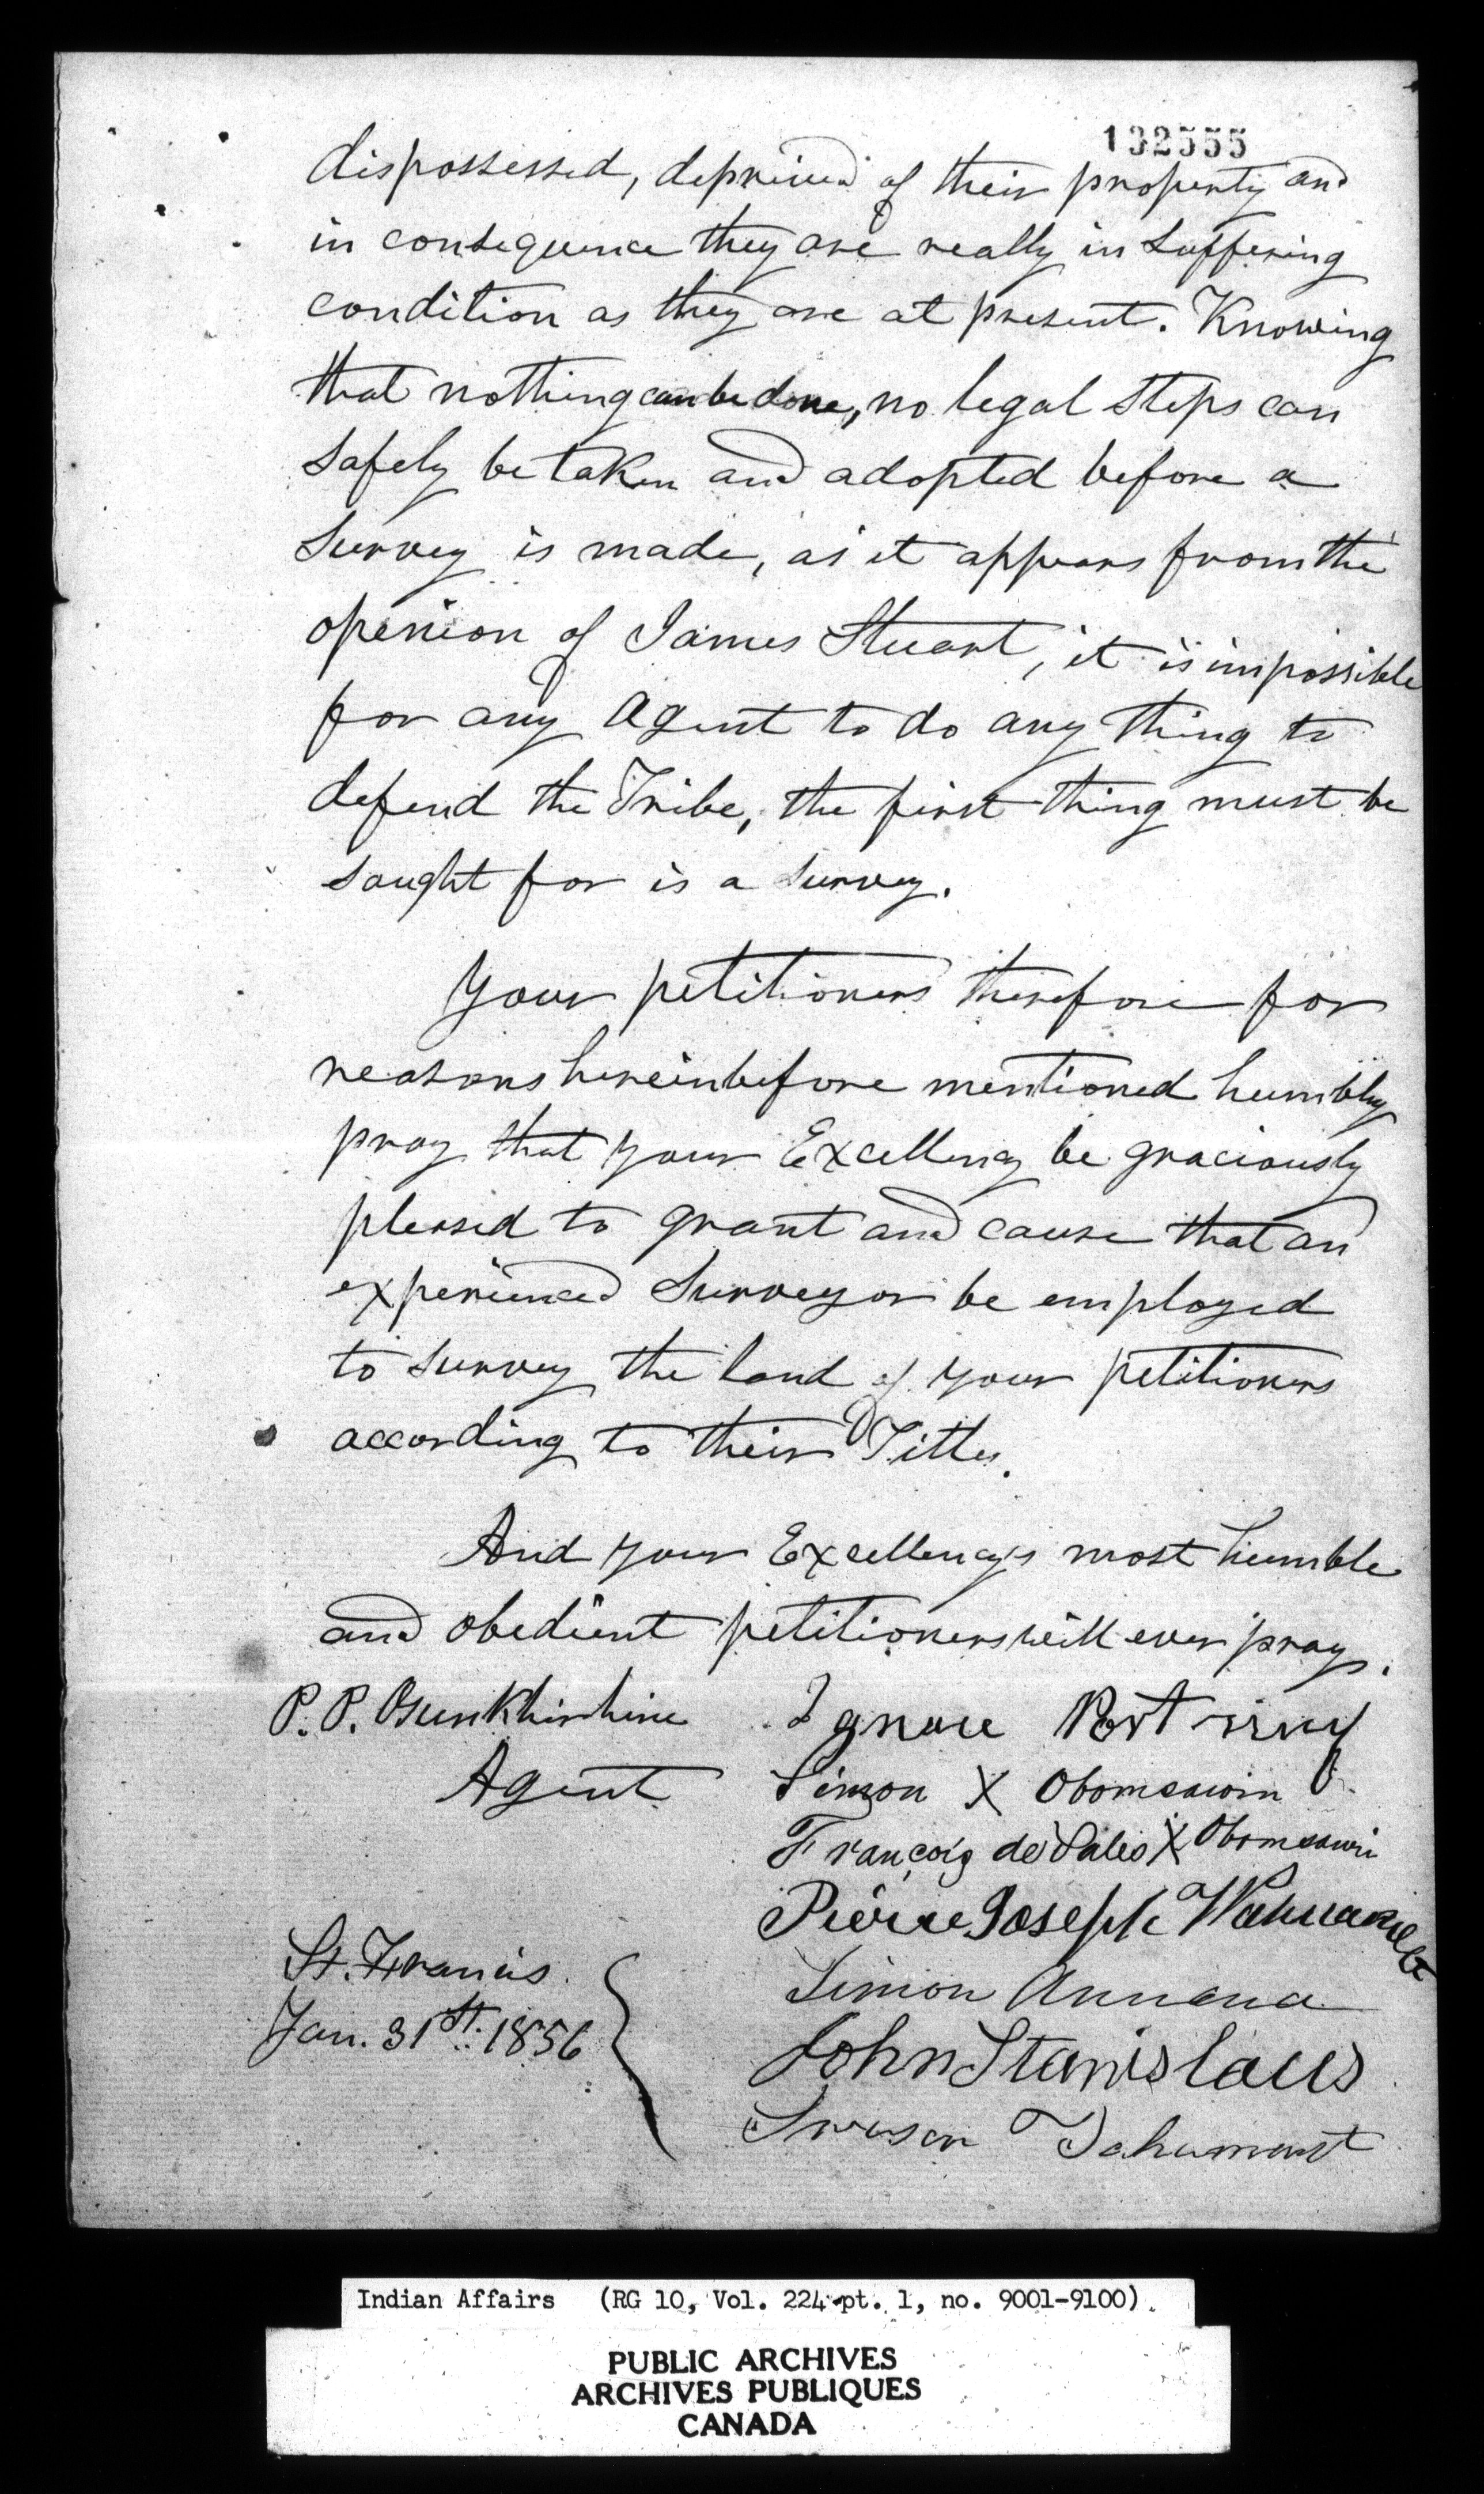 132555
dispossessed, deprived of their property and
in consequence they are really in suffering
condition as they are at present. Knowing
that nothing can be done, no legal steps can
safely be taken and adopted before a
survey is made, as it appears from the
openion of James Stuart, it is impossible
for any Agent to do any thing to
defend the Tribe, the first thing must be
sought for is a survey.
Your petitioners therefore for
reasons hereinbefore mentioned humbly
pray that your Excellency be graciously
pleased to grant and cause that an
experienced Surveyor be employed
to survey the land of your petitioners
according to their Titles.
And your Excellency's most humble
and obedient petitioners will ever pray.
P. P. Osunkhirhine
Agent
Ignace Portneuf
Simon X Obomsawin
François de Sales X Obomsawin
Pierre Joseph
Simon Annana
John Stanislaus
Tahamont
St. Francis
Jan. 31st. 1856
Indian Affairs (RG 10, Vol. 224 pt. 1, no. 9001-9100)
PUBLIC ARCHIVES
ARCHIVES PUBLIQUES
CANADA